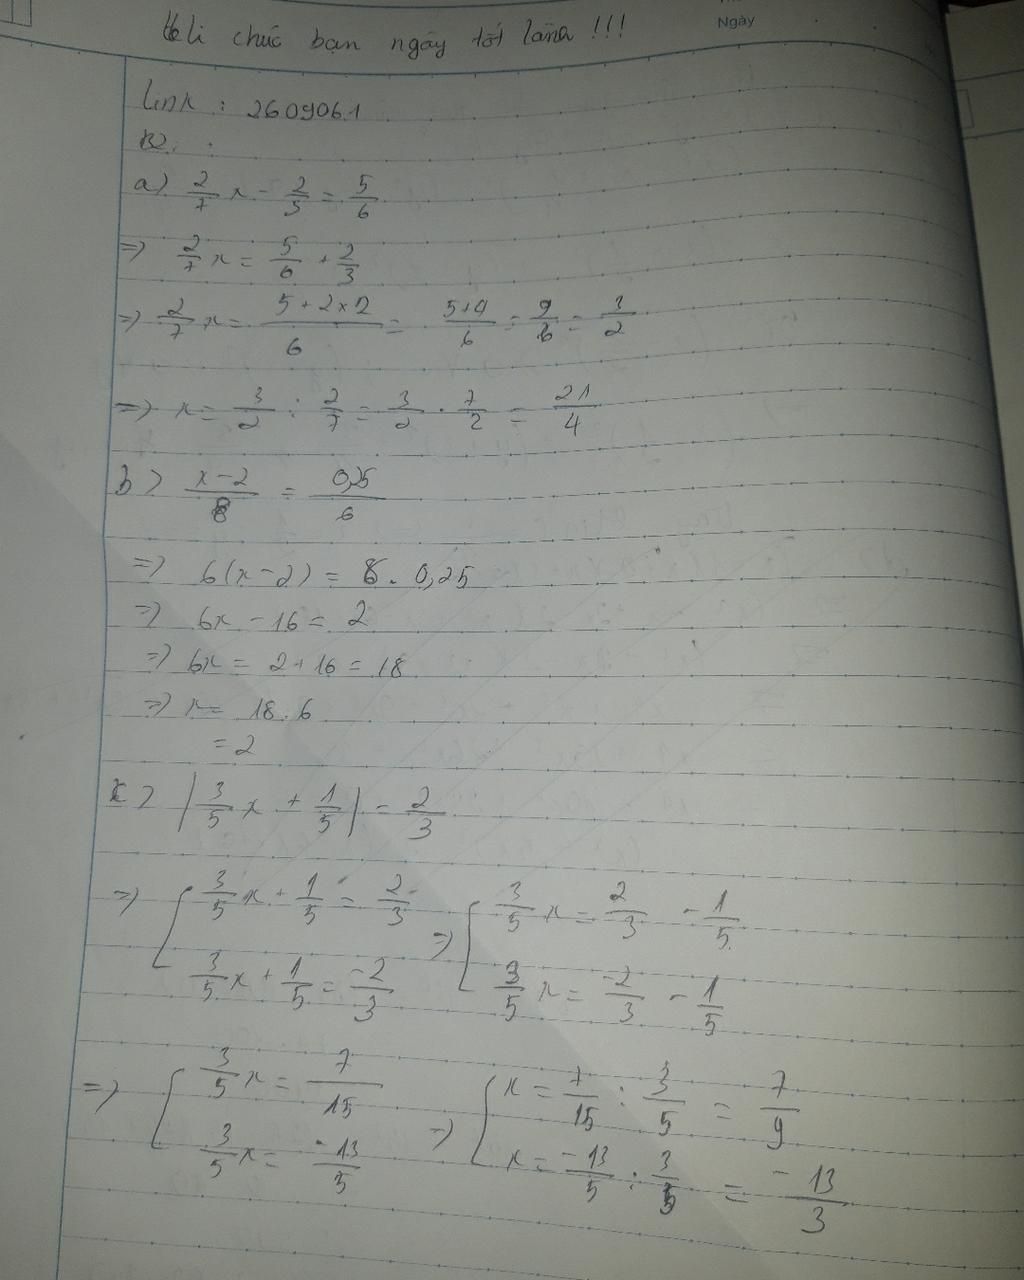 Ngày
Heli chúc bạn ngày tốt lành !!!
link : 2609061
B2:
a) 2/7 x - 2/3 = 5/6
=> 2/7 x = 5/6 + 2/3
=> 2/7 x = (5 + 2 x 2)/6 = (5+4)/6 = 9/6 = 3/2
=> x = 3/2 : 2/7 = 3/2 . 7/2 = 21/4
b) (x-2)/8 = 0,25/6
=> 6(x-2) = 8 . 0,25
=> 6x - 16 = 2
=> 6x = 2+16 = 18
=> x = 18.6
= 2
c) |3/5 x + 1/5| = 2/3
=> [ 3/5 x + 1/5 = 2/3 => [ 3/5 x = 2/3 - 1/5
3/5 x + 1/5 = -2/3 3/5 x = -2/3 - 1/5
=> [ 3/5 x = 7/15 => [ x = 7/15 : 3/5 = 7/9
3/5 x = -13/5 x = -13/5 : 3/5 = -13/3